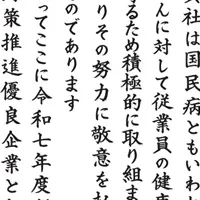 社は国民病ともいわ
んに対して従業員の健康
るため積極的に取り組ま
りその努力に敬意を
のであります
ってここに令和七年度
策推進優良企業と